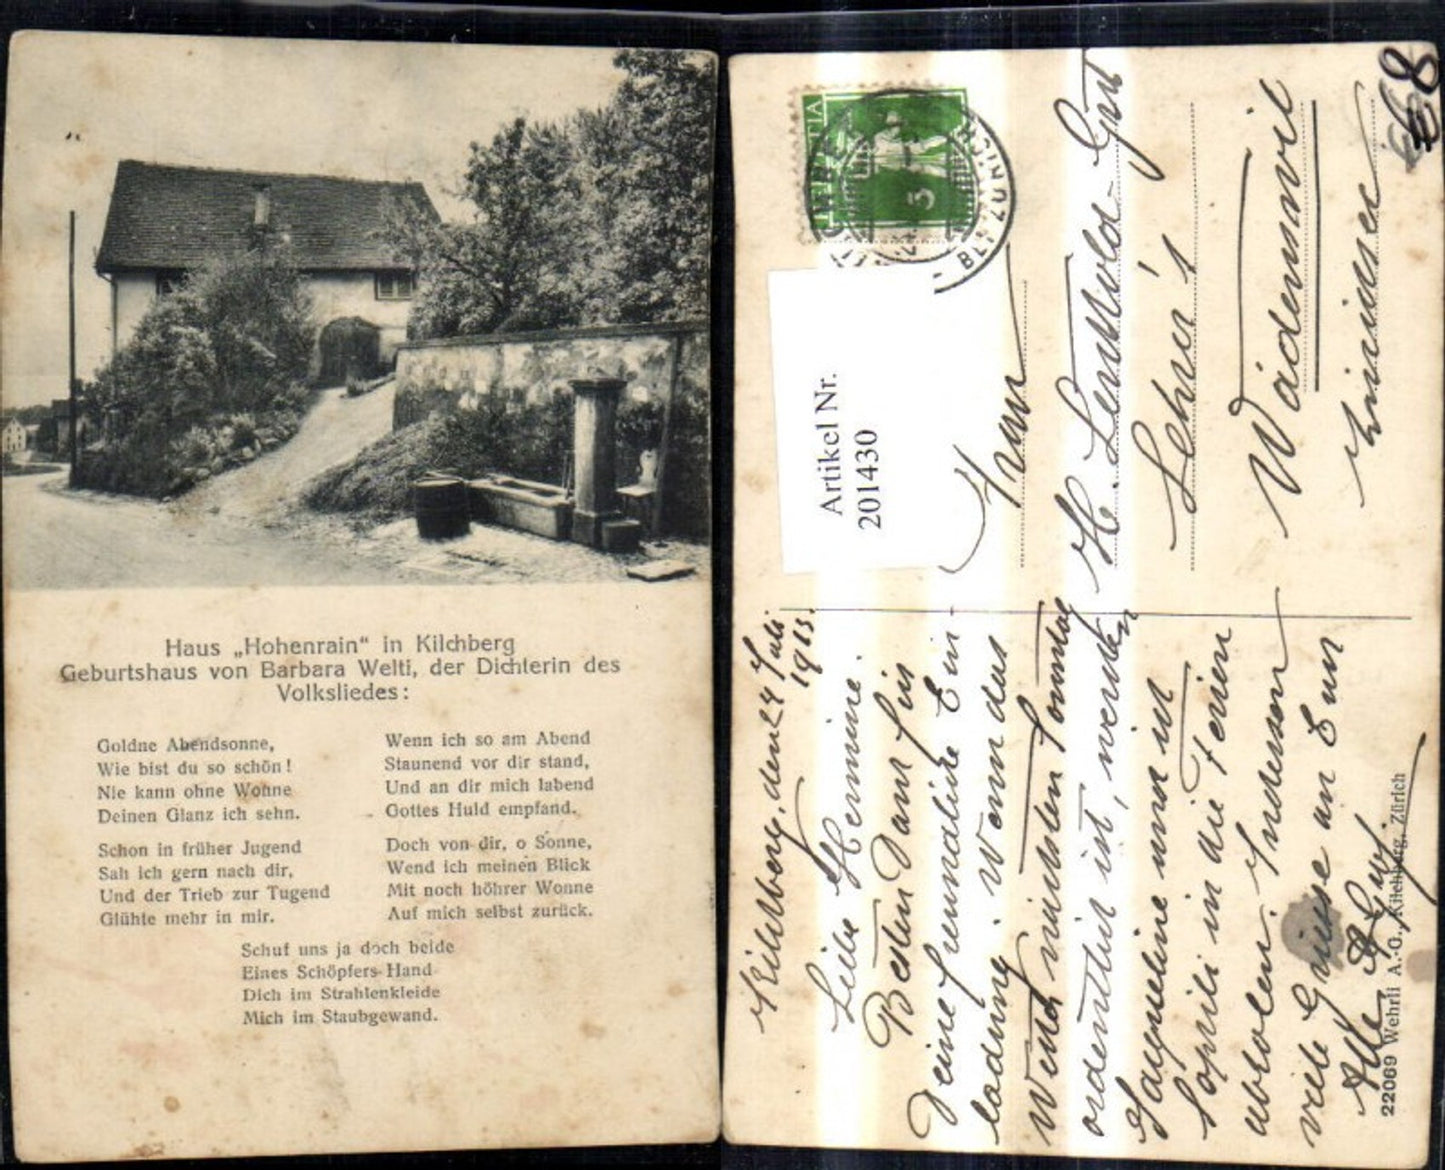 Haus „Hohenrain“ in Kilchberg
Geburtshaus von Barbara Welti, der Dichterin des
Volksliedes:
Goldne Abendsonne,
Wie bist du so schön!
Nie kann ohne Wonne
Deinen Glanz ich sehn.
Schon in früher Jugend
Sah ich gern nach dir,
Und der Trieb zur Tugend
Glühte mehr in mir.
Wenn ich so am Abend
Staunend vor dir stand,
Und an dir mich labend
Gottes Huld empfand.
Doch von dir, o Sonne,
Wend ich meinen Blick
Mit noch höhrer Wonne
Auf mich selbst zurück.
Schuf uns ja doch beide
Eines Schöpfers Hand
Dich im Strahlenkleide
Mich im Staubgewand.
HELVETIA
5
Artikel Nr.
201430
Kilchberg, den 24 Juli
1913.
Liebe Hermine.
Besten Dank für
Deine freundliche Ein-
ladung. Wenn das
Wetter nächsten Sonntag
ordentlich ist, werden
Jaqueline und ich
in die Ferien
abholen. Indessen
viele Grüsse an Euch
Alle
Frau
H. Leuthold-
Lehrer's
Wädenswil
Zürichsee
€8
22069 Wehrli A.-G., Kilchberg, Zürich